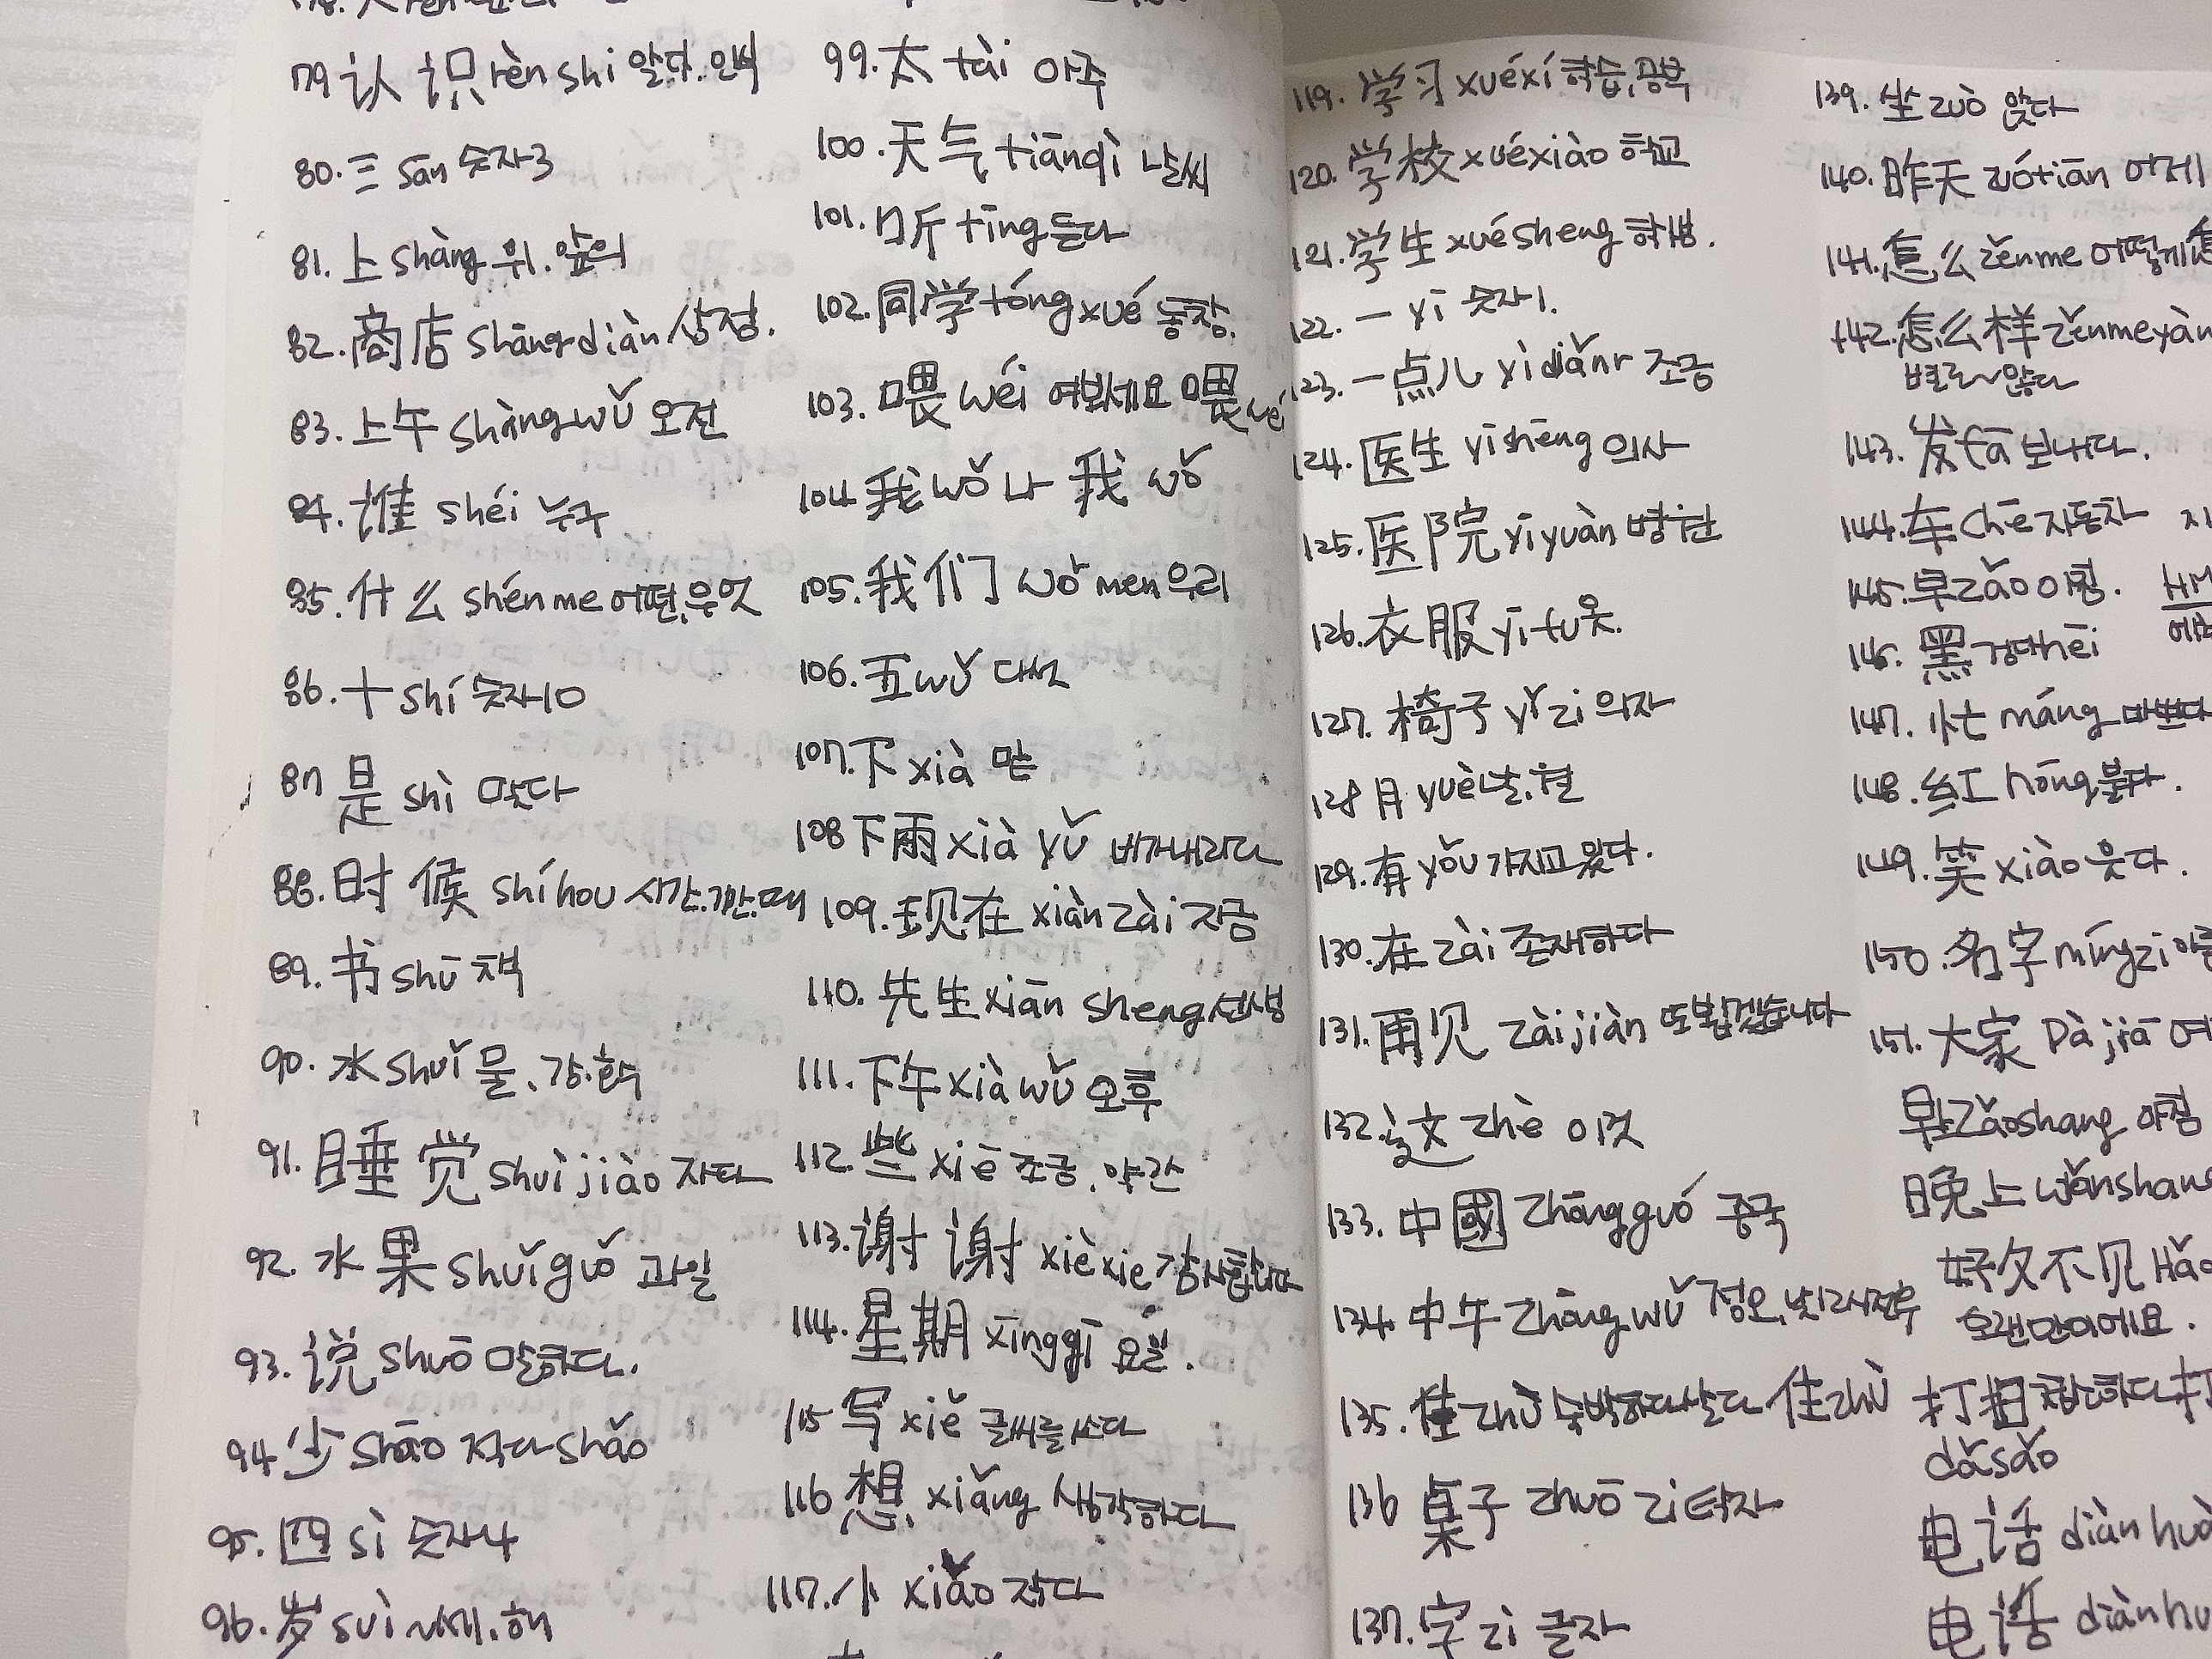 79 认识 rèn shi 알다. 인식
80. 三 sān 숫자3
81. 上 shàng 위. 앞의
82. 商店 shāngdiàn 상점.
83. 上午 shàngwǔ 오전
84. 谁 shéi 누구
85. 什么 shénme 어떤, 무엇
86. 十 shí 숫자10
87 是 shì 맞다
88. 时候 shíhou 시간. 기간. 때
89. 书 shū 책
90. 水 shuǐ 물, 강.호수
91. 睡觉 shuìjiào 자다
92. 水果 shuǐguǒ 과일
93. 说 shuō 말하다.
94 少 shāo 적다 shǎo
95. 四 sì 숫자4
96. 岁 suì 나이. 해
99. 太 tài 아주
100. 天气 tiānqì 날씨
101. 听 tīng 듣다
102. 同学 tóngxué 동창.
103. 喂 wéi 여보세요 喂 wéi
104 我 wǒ 나 我 wǒ
105. 我们 wǒ men 우리
106. 五 wǔ 다섯
107. 下 xià 밑
108 下雨 xià yǔ 비가내리다
109. 现在 xiànzài 지금
110. 先生 xiān sheng 선생
111. 下午 xiàwǔ 오후
112. 些 xiē 조금, 약간
113. 谢谢 xièxie 감사합니다
114. 星期 xīngqī 요일.
115 写 xiě 글씨를 쓰다
116 想 xiǎng 생각하다
117. 小 xiǎo 작다
119. 学习 xuéxí 학습, 공부
120. 学校 xuéxiào 학교
121. 学生 xuésheng 학생.
122. 一 yī 숫자1.
123. 一点儿 yìdiǎnr 조금
124. 医生 yīshēng 의사
125. 医院 yīyuàn 병원
126. 衣服 yīfu 옷.
127. 椅子 yǐ zi 의자
128 月 yuè 달, 월
129. 有 yǒu 가지고 있다.
130. 在 zài 존재하다
131. 再见 zàijiàn 또봅겠습니다
132. 这 zhè 이것
133. 中國 zhōngguó 중국
134. 中午 zhōngwǔ 정오, 낮12시전후
135. 住 zhù 숙박하다 살다 住 zhù
136 桌子 zhuō zi 탁자
137. 字 zì 글자
139. 坐 zuò 앉다
140. 昨天 zuótiān 어제
141. 怎么 zěnme 어떻게
142. 怎么样 zěnmeyàn
별로~않다
143. 发 fā 보내다.
144. 车 chē 자동차
145. 早 zǎo 아침.
146. 黑 검다 hēi
147. 忙 máng 바쁘다
148. 红 hōng 붉다.
149. 笑 xiào 웃다.
150. 名字 míngzi
151. 大家 Dà jiā
早上 zǎoshang 아침
晚上 wǎnshang
好久不见 Hǎo
오랜만이에요.
打扫 청소하다 打
dǎsǎo
电话 diànhuà
电话 diànhu